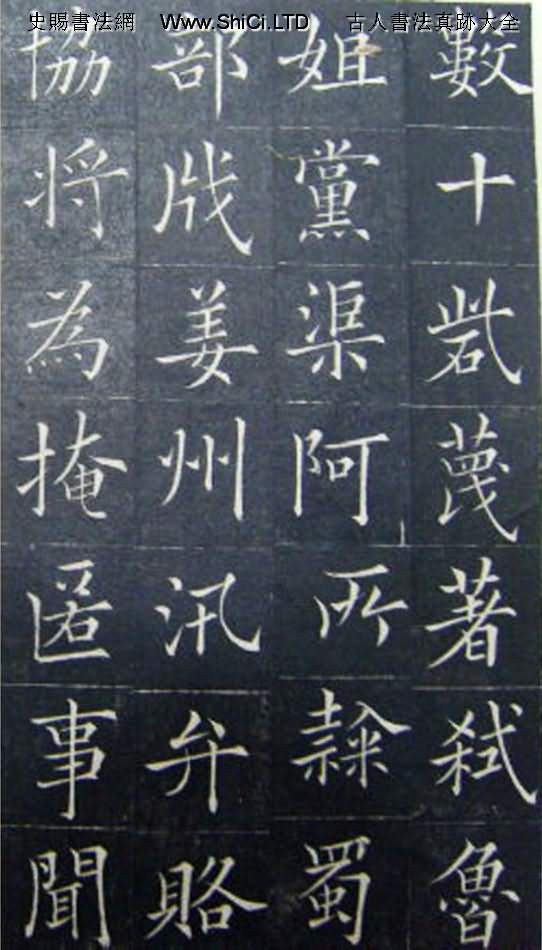 史賜書法網 Www.ShiCi.LTD 古人書法真跡大全
數十砦蔑著弑魯
姐黨渠阿所隸蜀
部戕姜州汛弁賂
協将為掩匿事聞